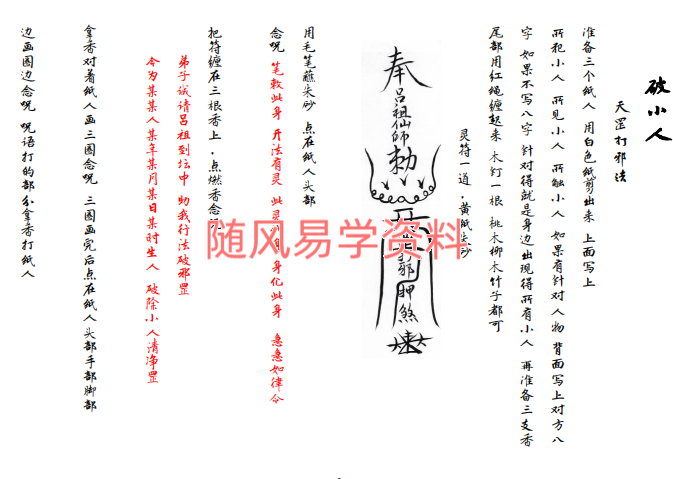 破小人
天罡打邪法
准备三个纸人 用白色纸剪出来 上面写上
所犯小人 所见小人 所触小人 如果有针对人物 背面写上对方八
字 如果不写八字 针对得就是身边出现得所有小人 再准备三支香
尾部用红绳缠起来 木钉一根 桃木柳木竹子都可
灵符一道，黄纸朱砂
奉吕祖仙师勅
邪押煞
用毛笔蘸朱砂 点在纸人头部
念咒 笔敕此身 开法有灵 此灵 身 身化此身 急急如律令
把符缠在三根香上，点燃香念
弟子诚请吕祖到坛中 助我行法破邪罡
今为某某人某年某月某日某时生人 破除小人清净罡
拿香对着纸人画三圈念咒 三圈画完后点在纸人头部手部脚部
边画圈边念咒 咒语打的部分拿香打纸人
随风易学资料